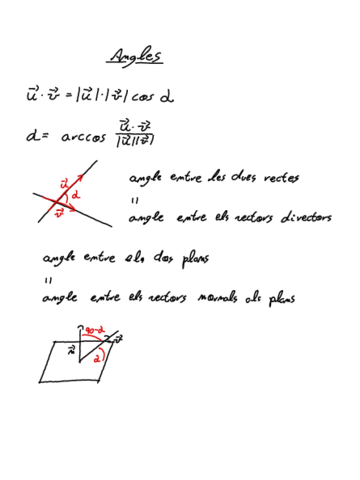 Angles
u⃗ · v⃗ = |u⃗| · |v⃗| cos α
α = arccos u⃗ · v⃗ / |u⃗||v⃗|
u⃗
α
v⃗
angle entre les dues rectes
=
angle entre els vectors directors
angle entre els dos plans
=
angle entre els vectors normals als plans
90-α
n⃗
v⃗
α